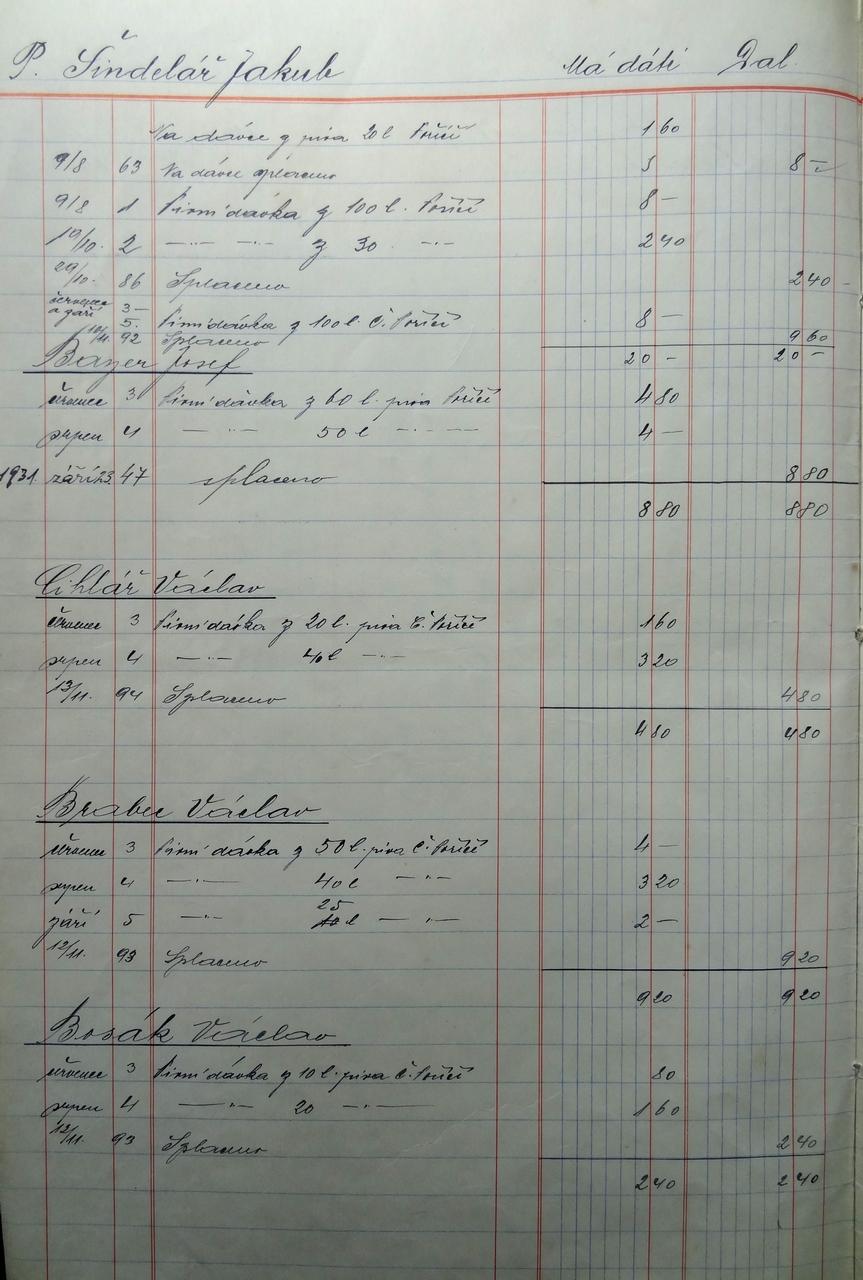 P. Šindelář Jakub Má dáti Dal
Na dávce z piva 20 l Poříčí 1 60
9/8 63 Na dávce spláceno 8 —
9/8 1 Pivní dávka z 100 l. Poříčí 8 —
19/10. 2 — " — — " — z 30 — " — 2 40
29/10. 86 Splaceno 2 40 —
července a září 3 —
5. Pivní dávka z 100 l. Č. Poříčí 8 —
10/11. 92 Splaceno 9 60
Bayer Josef 20 — 20 —
červenec 3 Pivní dávka z 60 l. piva Poříčí 4 80
srpen 4 — " — 50 l — " — 4 —
1931. září 23. 47 splaceno 8 80
8 80 8 80
Cihlář Václav
červenec 3 Pivní dávka z 20 l. piva Č. Poříčí 1 60
srpen 4 — " — 40 l — " — 3 20
13/11. 94 Splaceno 4 80
4 80 4 80
Brabec Václav
červenec 3 Pivní dávka z 50 l. piva Č. Poříčí 4 —
srpen 4 — " — 40 l — " — 3 20
září 5 — " — 25 l — " — 2 —
12/11. 93 Splaceno 9 20
9 20 9 20
Bosák Václav
červenec 3 Pivní dávka z 10 l. piva Č. Poříčí 80
srpen 4 — " — 20 — " — 1 60
12/11. 93 Splaceno 2 40
2 40 2 40